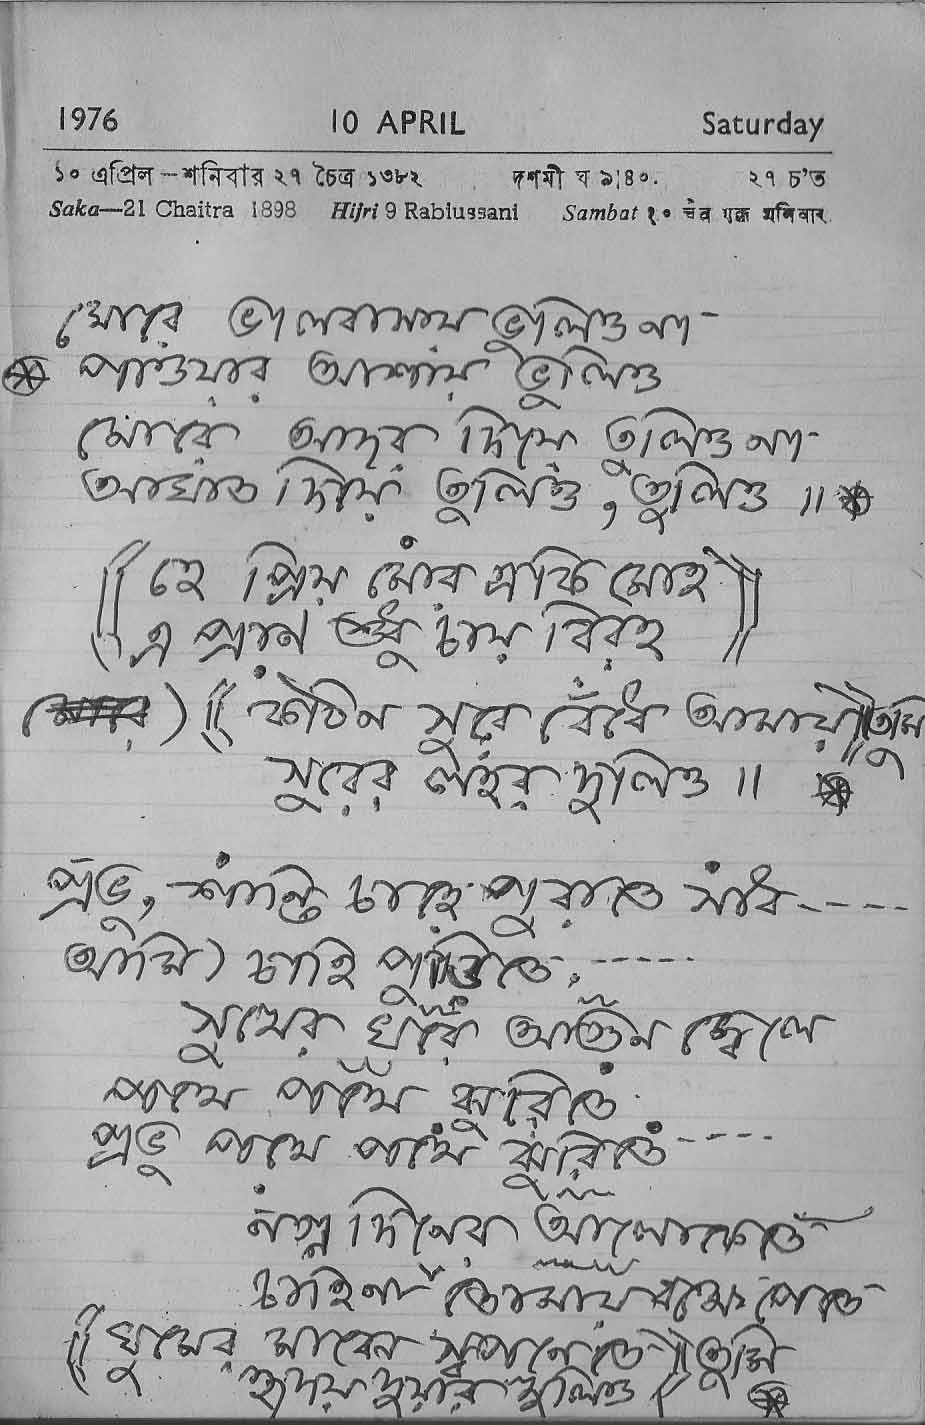 1976 10 APRIL Saturday
১০ এপ্রিল — শনিবার ২৭ চৈত্র ১৩৮২ দশমী ঘ ৯।৪০. ২৭ চ'ত
Saka—21 Chaitra 1898 Hijri 9 Rabiussani Sambat १० चैत्र शुक्ल शनिवार
মোরে ভালবাসায় ভুলিও না-
পাওয়ার আশায় ভুলিও
মোরে আদর দিয়ে তুলিও না-
আঘাত দিয়ে তুলিও, তুলিও ॥
(( হে প্রিয় মোর একি মোহ ))
(( এ প্রাণ শুধু চায় বিরহ ))
মোরে) (( কঠিন সুরে বেঁধে আমায় )) তুমি
সুরের লহর দুলিও ॥
প্রভু, শান্তি চাহে পুরাতে সাধ ----
আমি) চাহি পুড়িতে, -----
সুখের ঘরে আগুন জ্বেলে
পথে পথে ঝুরিতে
প্রভু পথে পথে ঝুরিতে ----
নগ্ন দিনের আলোকেতে
চাহিনা তোমায় বক্ষে পেতে
(( ঘুমের মাঝে স্বপনেতে )) তুমি
হৃদয় দুয়ার খুলিও